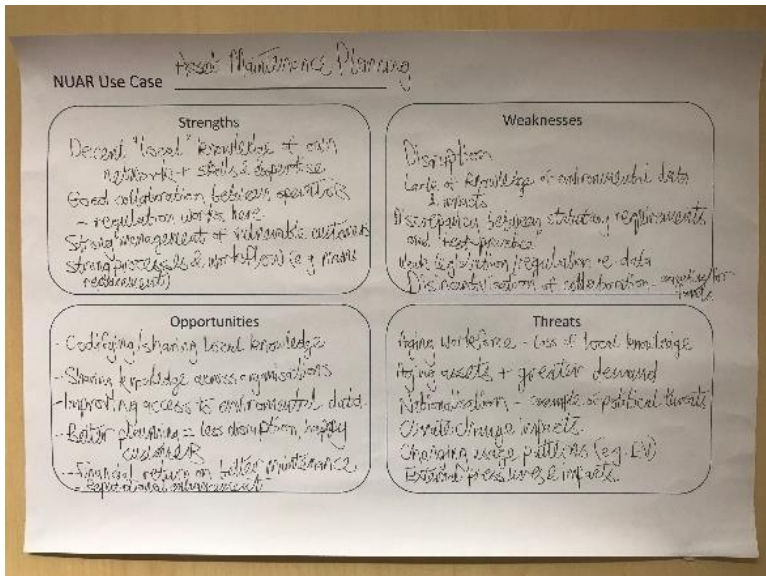 NUAR Use Case Asset Maintenance Planning
Strengths
Decent "local" knowledge of own
networks + skills & expertise
Good collaboration between operators
- regulation works here
Strong management of vulnerable customers
Strong processes & workflow (e.g. mains
replacement)
Weaknesses
Disruption
Lack of knowledge of environmental data
& impacts
Discrepancy between statutory requirements
and best practice
Weak legislation/regulation re data
Disincentivisation of collaboration - competing for
funds
Opportunities
- Codifying/sharing local knowledge
- Sharing knowledge across organisations
- Improving access to environmental data
- Better planning = less disruption, happy
customers
- Financial return on better maintenance
- Reputational enhancement
Threats
Aging workforce - loss of local knowledge
Aging assets + greater demand
Nationalisation - example of political threats
Climate change impacts
Changing usage patterns (eg. EV)
External pressures & impacts